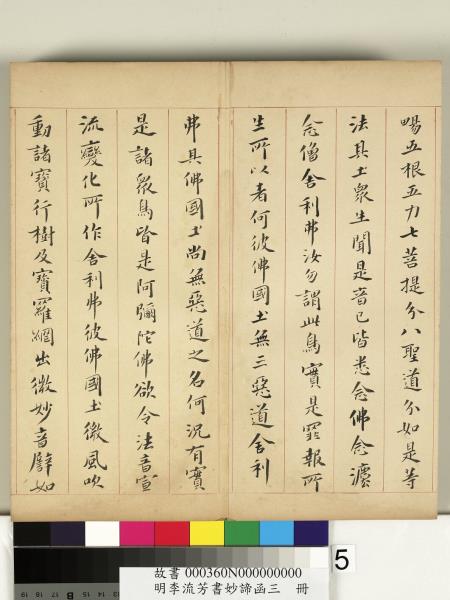 暢五根五力七菩提分八聖道分如是等
法其土眾生聞是音已皆悉念佛念灋
念僧舍利弗汝勿謂此鳥實是罪報所
生所以者何彼佛國土無三惡道舍利
弗其佛國土尚無惡道之名何況有實
是諸眾鳥皆是阿彌陀佛欲令法音宣
流變化所作舍利弗彼佛國土微風吹
動諸寶行樹及寶羅網出微妙音譬如
5
故書 000360N000000000
明李流芳書妙諦函三 冊
B 17 16 15 14 18 19